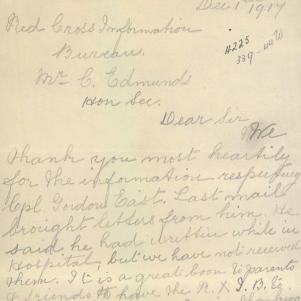 Dec 1st 1917
Red Cross Information
Bureau.
Mr C. Edmunds
Hon Sec.
Dear Sir
We
thank you most heartily
for the information respecting
Cpl. Gordon East. Last mail
brought letters from him. He
said he had writtin while in
Hospital, but we have not received
them. It is a great boon to parents
& friends to have the R. X. I. B. Eg